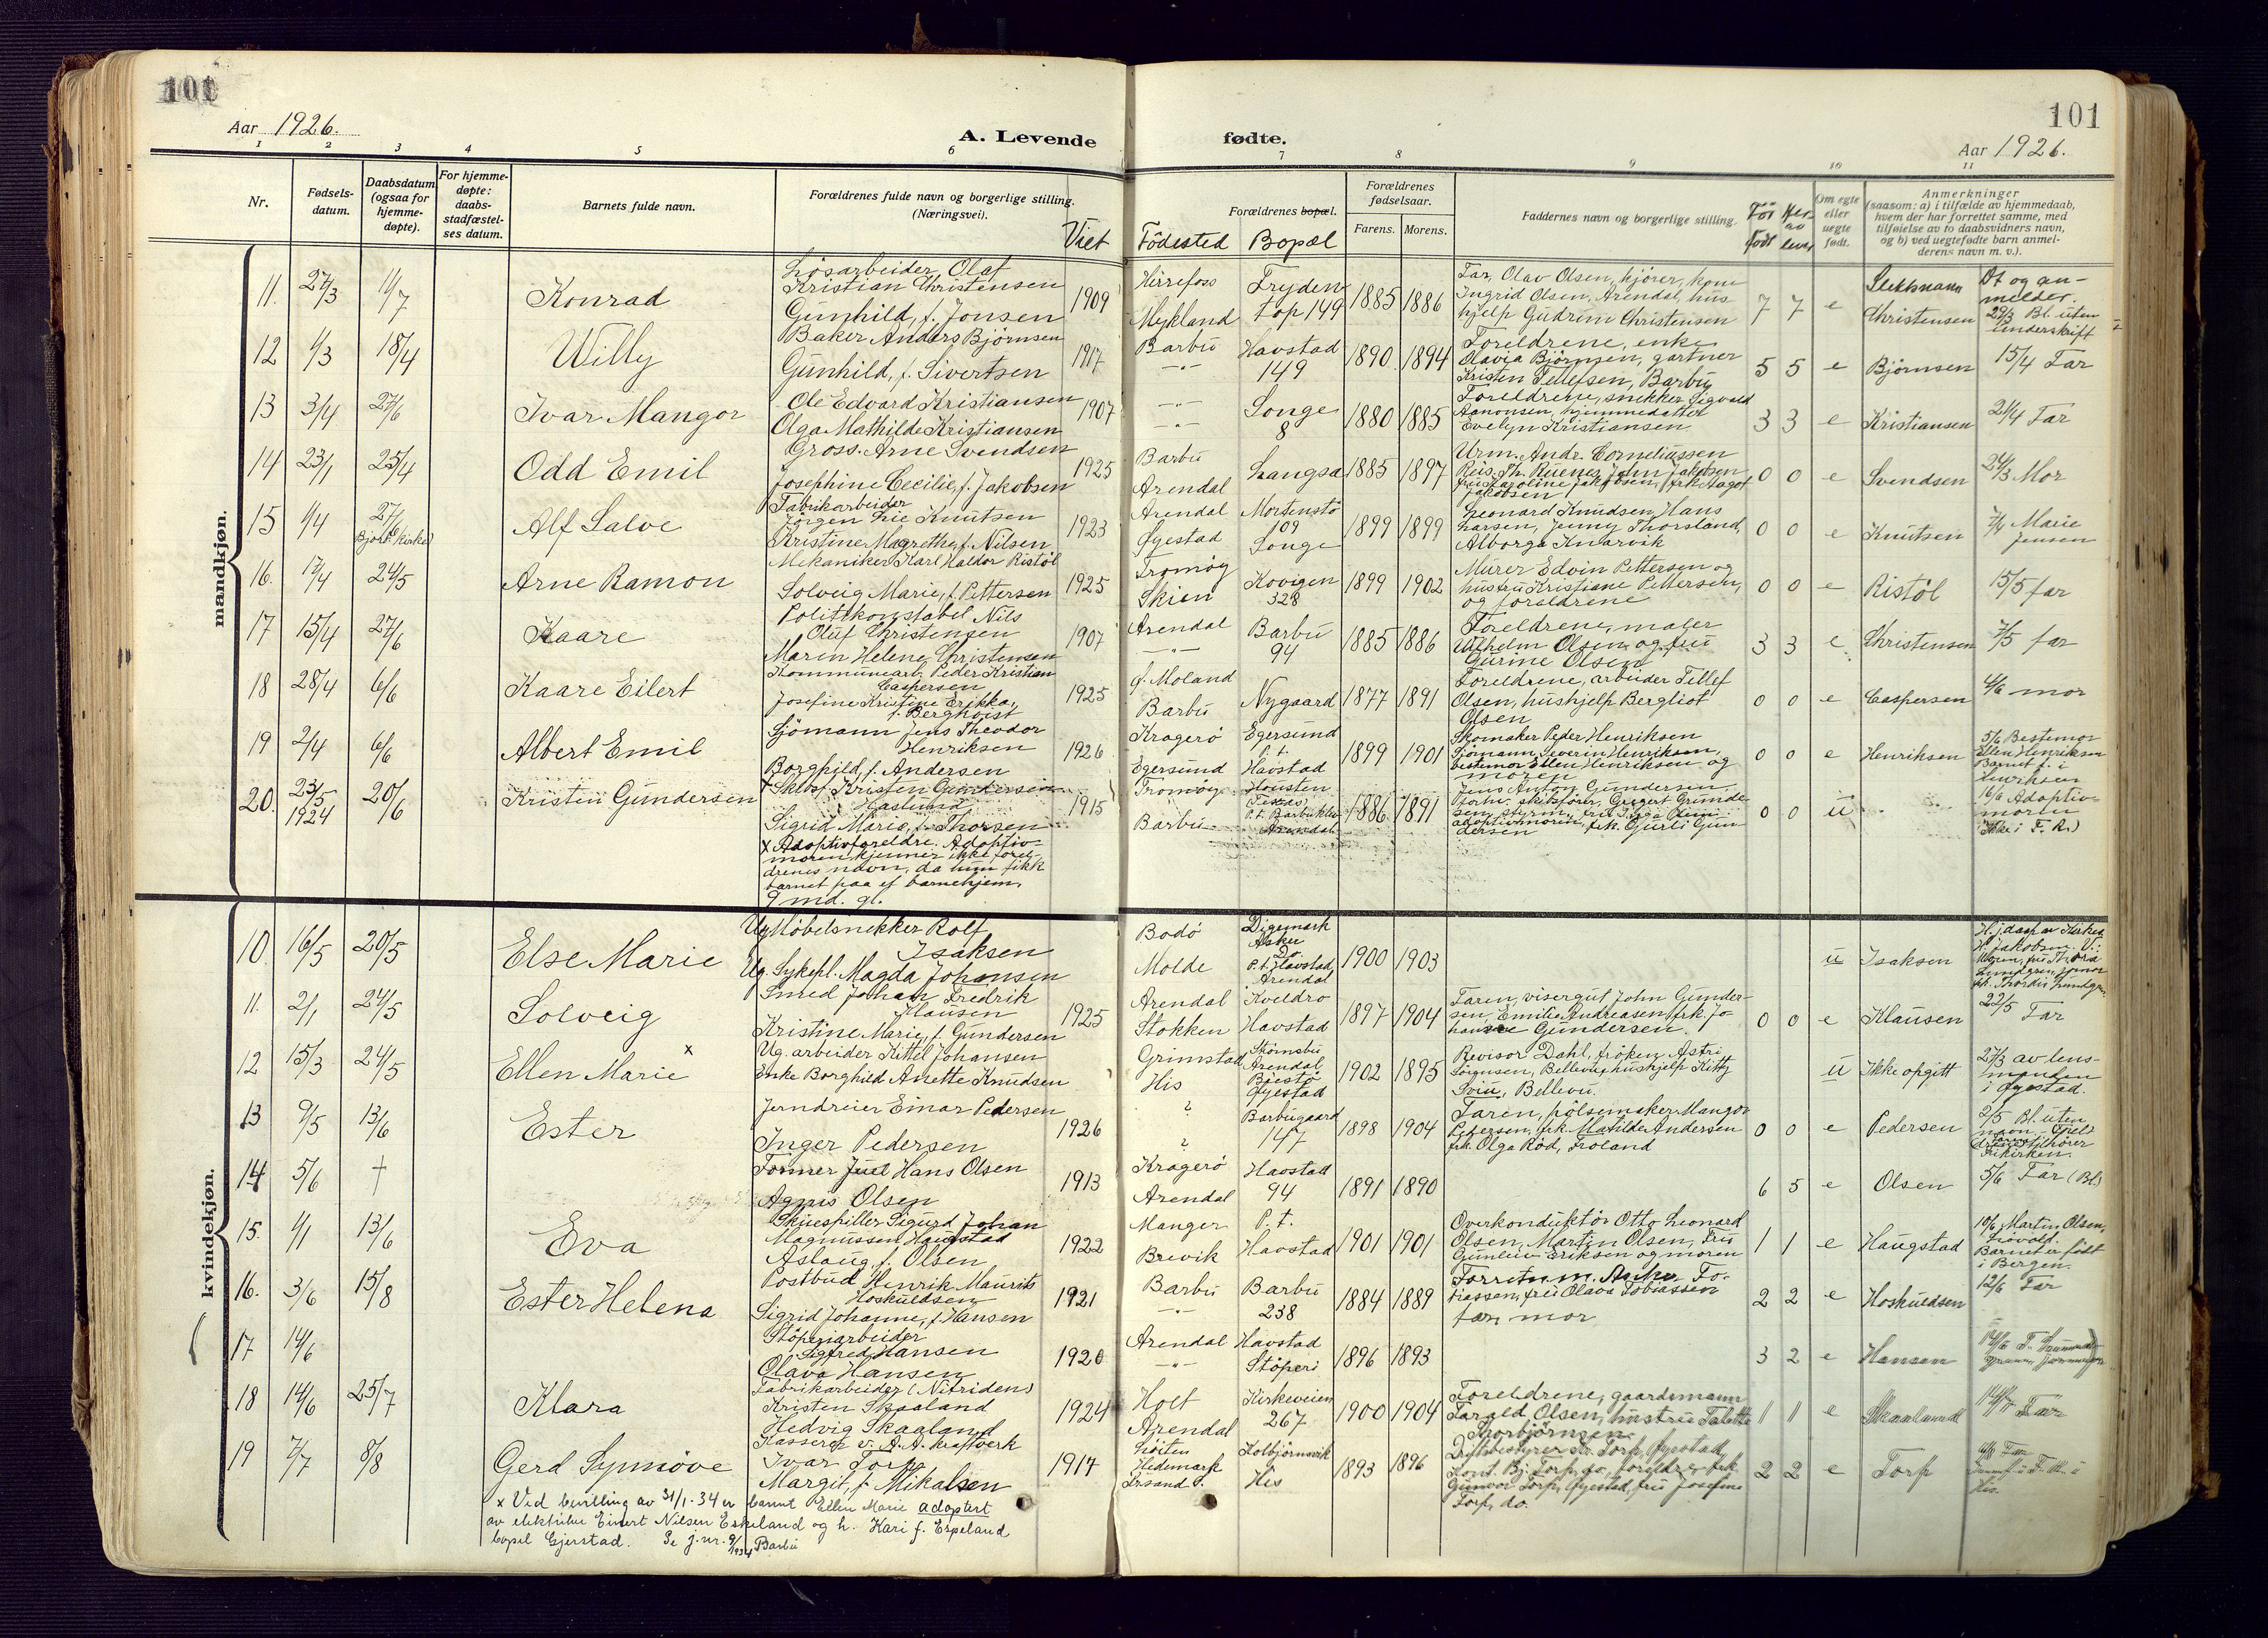 101
101
Aar 1926.
A. Levende
fødte.
Aar 1926.
1 2 3 4 5 6 7 8 9 10 11
Nr.
Fødsels-
datum.
Daabsdatum
(ogsaa for
hjemme-
døpte).
For hjemme-
døpte:
daabs-
stadfæstel-
ses datum.
Barnets fulde navn.
Forældrenes fulde navn og borgerlige stilling.
(Næringsvei).
Viet
Forældrenes bopæl.
Fødested Bopæl
Forældrenes
fødselsaar.
Farens. Morens.
Faddernes navn og borgerlige stilling.
Før
født
Her-
av
lever
Om egte
eller
uegte
født.
Anmerkninger
(saasom: a) i tilfælde av hjemmedaab,
hvem der har forrettet samme, med
tilføielse av to daabsvidners navn,
og b) ved uegtefødte barn anmel-
derens navn m. v.).
mandkjøn.
11. 27/3 11/7 Konrad
Løsarbeider Olaf
Kristian Christensen
Gunhild, f. Jonsen
1909
Hirrefoss
Mykland
Fryden
top 149
1885 1886
Far, Olav Olsen, kjører, kone
Ingrid Olsen, Arendal, hus-
hjelp Gudrun Christensen
7 7 e
Slektsnavn
Christensen
Dt og an-
melder.
29/3 Bl. uten
underskrift
12 1/3 18/4 Willy
Baker Anders Bjørnsen
Gunhild, f. Sivertsen
1917
Barbu
-"-
Havstad
149
1890 1894
Foreldrene, enke
Olavia Bjørnsen, gartner
Kristen Tellefsen, Barbu
5 5 e Bjørnsen 15/4 Far
13 3/4 27/6 Ivar Mangor
Ole Edvard Kristiansen
Olga Mathilde Kristiansen
1907
-"-
-"-
Songe
8
1880 1885
Foreldrene, snekker Sigvald
Aanonsen, hjemmedatter
Evelyn Kristiansen
3 3 e Kristiansen 21/4 Far
14 23/1 25/4 Odd Emil
Gross. Arne Svendsen
Josephine Cecilie, f. Jakobsen
1925
Barbu
Arendal
Langsæ
1885 1897
Urm. Andr. Corneliussen
Jakobsen
0 0 e Svendsen 24/3 Mor
15 1/4 27/6 Alf Salve
Fabrikarbeider
Jørgen Lie Knutsen
Kristine Magrethe, f. Nilsen
1923
Arendal
Øyestad
Mortenstø
109
Songe
1899 1899
Leonard Knudsen, Hans
Larsen, Jenny Thorsland,
Alborga Knarvik
0 0 e Knutsen 7/4 Marie
Jensen
16. 17/4 24/5 Arne Ramon
Mekaniker Karl Haldor Ristøl
Solveig Marie, f. Pettersen
1925
Tromøy
Skien
Kovigen
328
1899 1902
Murer Edvin Pettersen og
hustru Kristiane Pettersen,
og foreldrene
0 0 e Ristøl 15/5 far
17 15/4 27/6 Kaare
Politikonstabel Nils
Oluf Christensen
Maren Helene Christensen
1907
Arendal
-"-
Barbu
94
1885 1886
Foreldrene, maler
Vilhelm Olsen og fru
Gurine Olsen
3 3 e Christensen 7/5 far
18 28/4 6/6 Kaare Eilert
Kommunearb. Peder Kristian
Caspersen
Josefine Kristine Erikka,
f. Berghvist
1925
Ø. Moland
Barbu
Nygaard
1877 1891
Foreldrene, arbeider Tellef
Olsen, hushjelp Bergliot
Olsen
0 0 e Caspersen 4/6 mor
19 2/4 6/6 Albert Emil
Sjømann Jens Theodor
Henriksen
Borghild, f. Andersen
1926
Kragerø
Egersund
Egersund
p. t.
Havstad
1899 1901
Skomaker Peder Henriksen
Sjømann Severin Henriksen,
bestemor Ellen Henriksen og
moren
0 0 e Henriksen
5/6 Bestemor
Ellen Henriksen
Barnet f. i
20. 23/5 1924 20/6 Kristen Gundersen
Kristen Gundersen
Haslund
Sigrid Marie, f. Thorsen
x Adoptivforeldre. Adoptiv-
moren kjenner ikke forel-
drenes navn, da hun fikk
barnet paa et barnehjem,
9 md. gl.
1915
Tromøy
Barbu
Housten
Texas,
p. t. Barbuklev
Arendal
1886 1891
Jens Anton Gundersen,
0 0 u
16/6 Adoptiv-
moren
(ikke i F. R.)
kvindekjøn.
10 16/5 20/5 Else Marie
Ug Møbelsnekker Rolf
Isaksen
Ug. Sykepl. Magda Johansen
Bodø
Molde
Digemark
Asker
p. t. Havstad,
Arendal
1900 1903
u Isaksen
11. 2/1 24/5 Solveig
Smed Johan Fredrik
Klausen
Kristine Marie, f. Gundersen
1925
Arendal
Stokken
Kveldro
Havstad
1897 1904
Faren, visergut John Gunder-
sen, Emilie Andreasen, frk. Jo-
hanne Gundersen.
0 0 e Klausen 22/5 Far
12 15/3 24/5 Ellen Marie x
Ug. arbeider Kittel Johansen
Enke Borghild Anette Knudsen
Grimstad
His
Arendal,
Øyestad
1902 1895
Revisor Dahl, frøken Astri
Sørensen, Bellevue, hushjelp Kitty
Sviu, Bellevu.
u Ikke opgitt
27/3 av lens-
manden
i Øyestad.
13 9/5 13/6 Ester
Jerndreier Einar Pedersen
Inger Pedersen
1926
?
?
Barbugaard
147
1898 1904
Faren, pølsemaker Mangor
Petersen, frk. Matilde Andersen
frk. Olga Rød, Froland
0 0 e Pedersen
2/5 Bl. uten
navn
Frikirken.
14 5/6 †
Former Juel Hans Olsen
Agnis Olsen
1913
Kragerø
Arendal
Havstad
94
1891 1890
6 5 e Olsen 5/6 Far (Bl.)
15. 1/1 13/6 Eva
Skuespiller Sigurd Johan
Magnussen Haugstad
Aslaug, f. Olsen
1922
Manger
Brevik
P. t.
Havstad
1901 1901
Overkonduktør Otto Leonard
Olsen, Martin Olsen, Fru
Gunleiv Eriksen og moren
1 1 e Haugstad
10/6 Martin Olsen,
Barnet er født
i Bergen.
16. 3/6 15/8 Ester Helena
Postbud Henrik Maurits
Hoskuldsen
Sigrid Johanne, f. Hansen
1921
Barbu
-"-
Barbu
238
1884 1889
far, mor
2 2 e Hoskuldsen 12/6 Far
17 14/6
Støperiarbeider
Sigfred Hansen
Olava Hansen
1920
Arendal
-"-
Havstad
Støperi
1896 1893
3 2 e Hansen
18 14/6 25/7 Klara
Fabrikarbeider (Nitriden)
Kristen Skaaland
Hedvig Skaaland
1924
Holt
Arendal
Kirkeveien
267
1900 1904
Foreldrene, gaardsmann
Tarald Olsen, hustru Talette
Thorbjørnsen.
1 1 e Skaaland Far
19 7/7 8/8 Gerd Synnøve
Kasserer v. A. A. kraftverk
Ivar Torp
Margit, f. Mikalsen
1917
Løiten
Hedemark
Kolbjørnsvik
His
1893 1896
Driftsbestyrer Torp, Øyestad,
Gunvor Torp, Øyestad, fru Josefine
Torp, do.
2 2 e Torp
x Ved bevilling av 31/1-34 er barnet Ellen Marie adoptert
av elektriker Einert Nilsen Eskeland og h. Kari f. Espeland
bopel Gjerstad. Se j.nr. 9/1934 Barbu